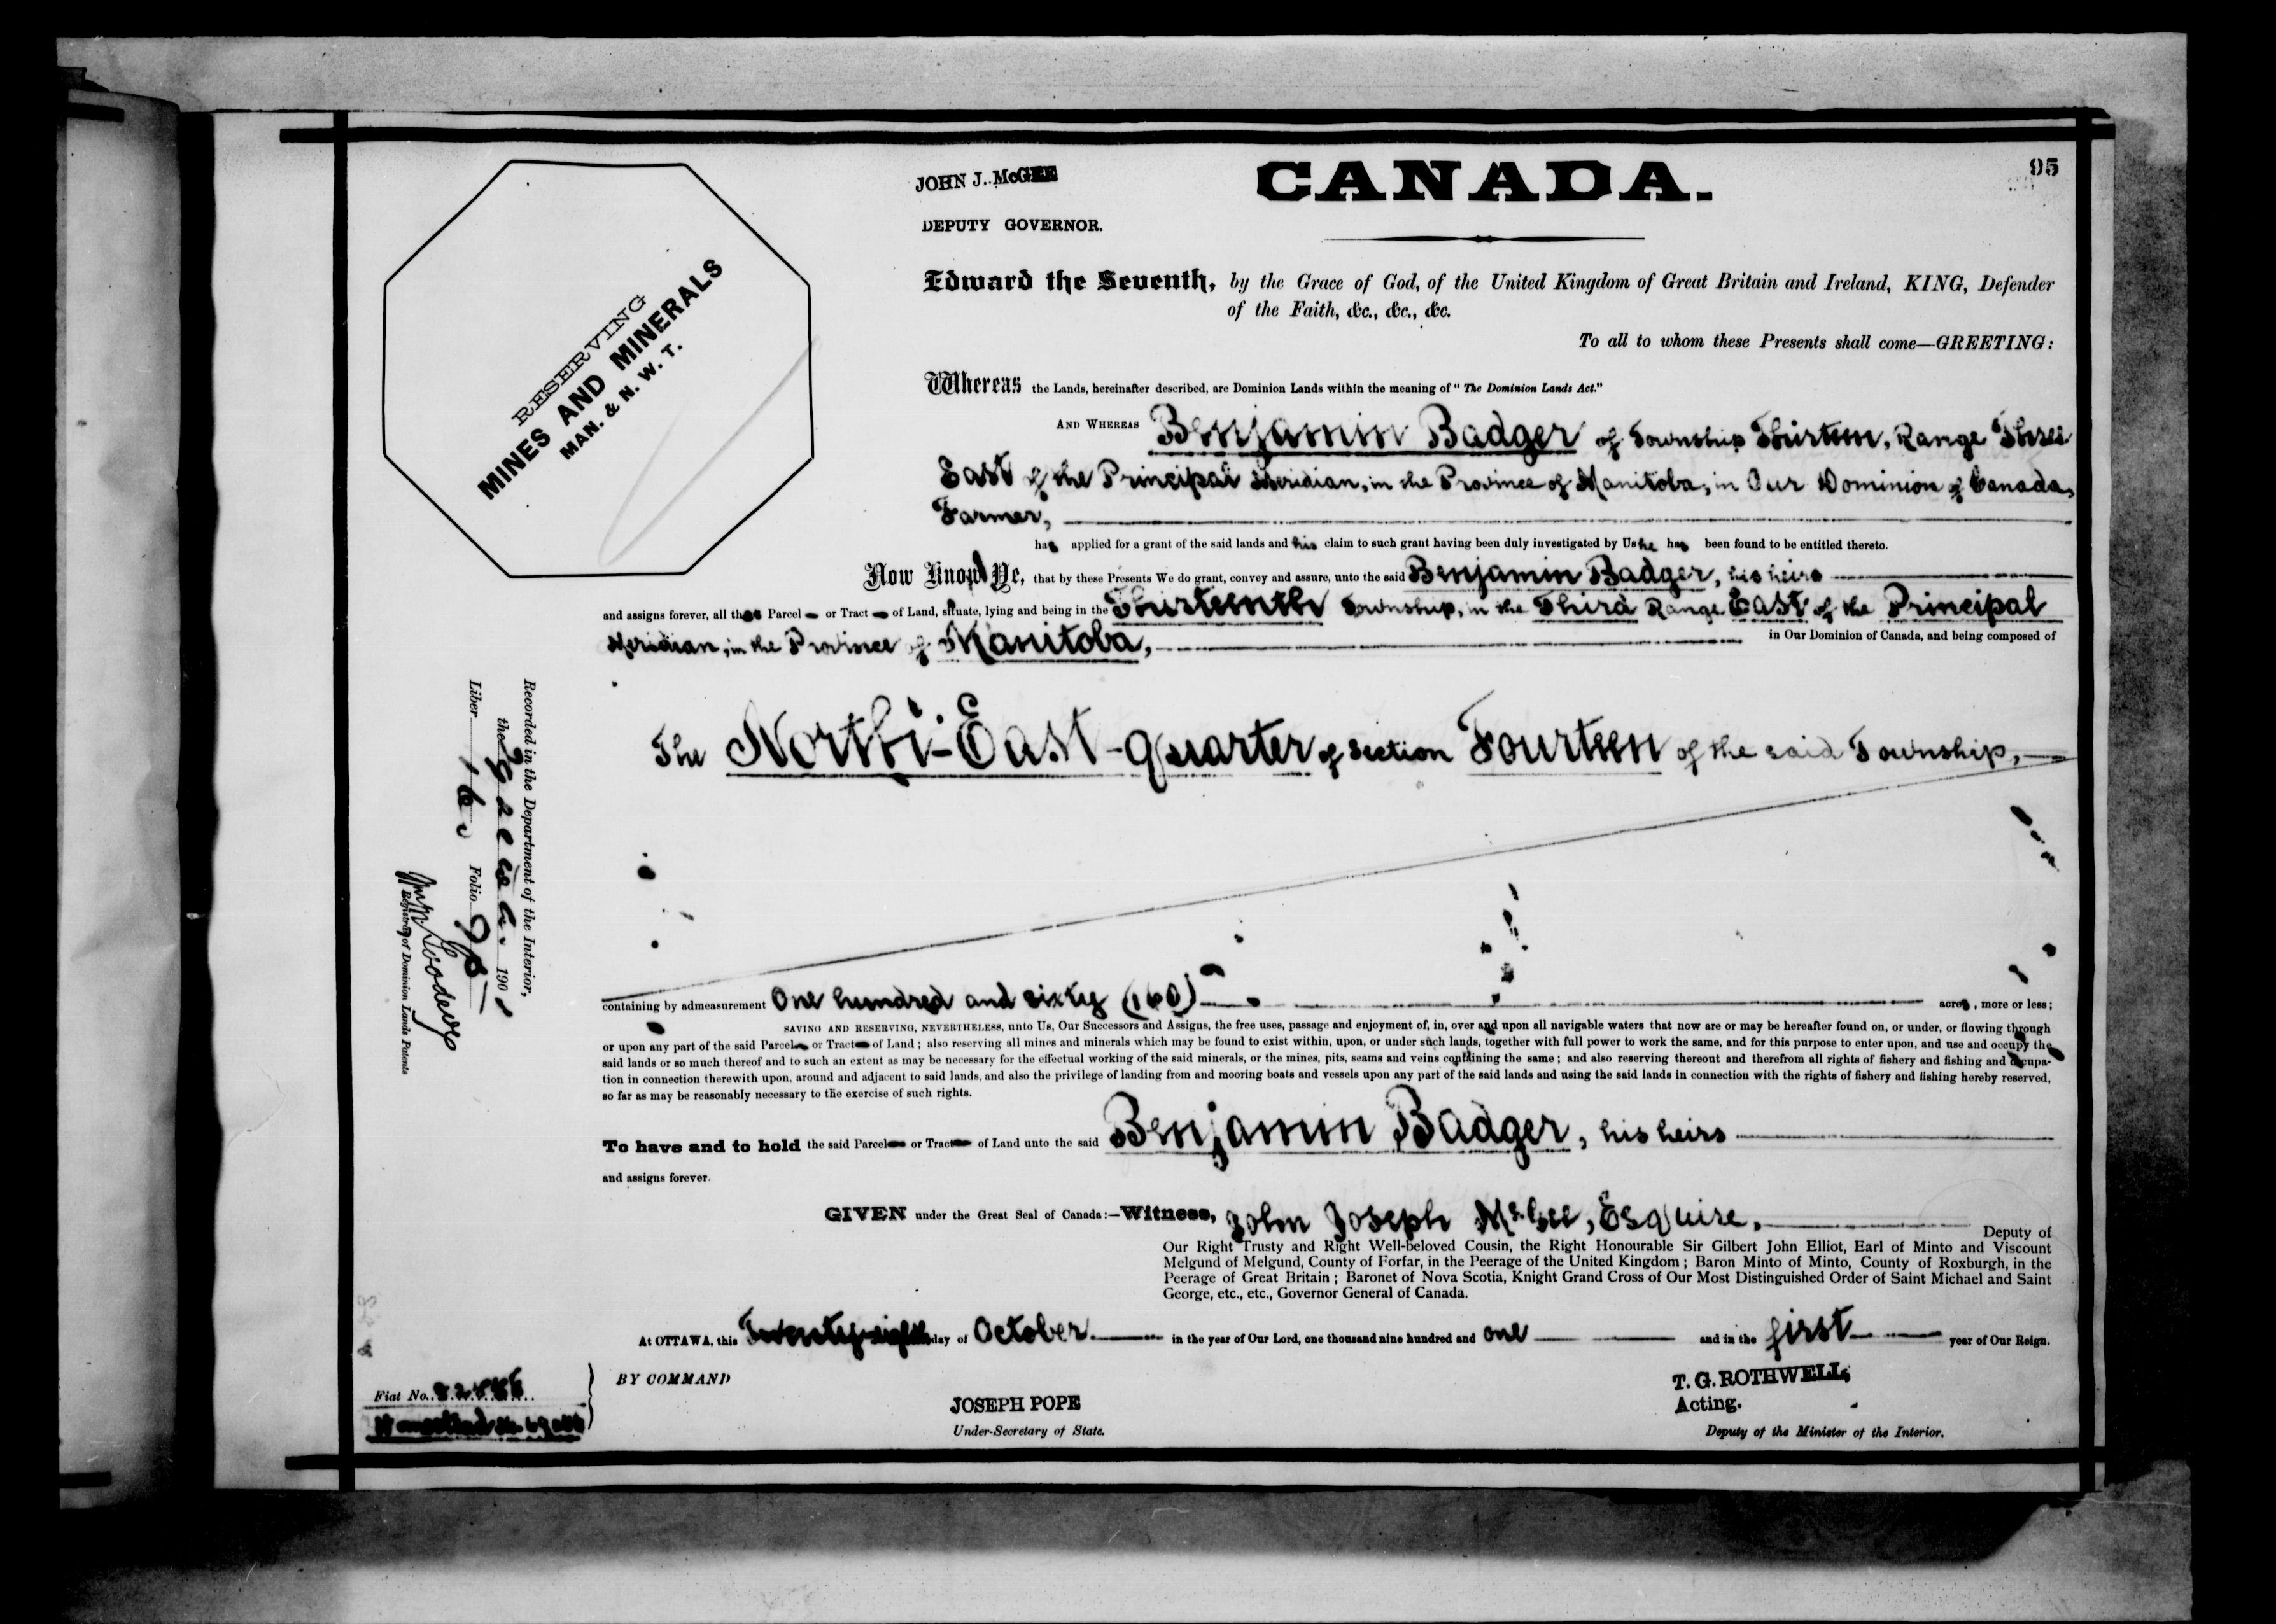 95
JOHN J. McGEE
CANADA.
DEPUTY GOVERNOR.
RESERVING
MINES AND MINERALS
MAN. & N. W. T.
Edward the Seventh, by the Grace of God, of the United Kingdom of Great Britain and Ireland, KING, Defender
of the Faith, &c., &c., &c.
To all to whom these Presents shall come—GREETING:
Whereas the Lands, hereinafter described, are Dominion Lands within the meaning of "The Dominion Lands Act."
AND WHEREAS Benjamin Badger of Township Thirteen, Range Three
East of the Principal Meridian, in the Province of Manitoba, in Our Dominion of Canada,
Farmer,
has applied for a grant of the said lands and his claim to such grant having been duly investigated by Us he has been found to be entitled thereto.
Now Know Ye, that by these Presents We do grant, convey and assure, unto the said Benjamin Badger, his heirs
and assigns forever, all that Parcel or Tract of Land, situate, lying and being in the Thirteenth Township, in the Third Range East of the Principal
Meridian, in the Province of Manitoba, in Our Dominion of Canada, and being composed of
The North-East-quarter of Section Fourteen of the said Township,
containing by admeasurement One hundred and sixty (160) acres, more or less;
SAVING AND RESERVING, NEVERTHELESS, unto Us, Our Successors and Assigns, the free uses, passage and enjoyment of, in, over and upon all navigable waters that now are or may be hereafter found on, or under, or flowing through
or upon any part of the said Parcel or Tract of Land; also reserving all mines and minerals which may be found to exist within, upon, or under such lands, together with full power to work the same, and for this purpose to enter upon, and use and occupy the
said lands or so much thereof and to such an extent as may be necessary for the effectual working of the said minerals, or the mines, pits, seams and veins containing the same; and also reserving thereout and therefrom all rights of fishery and fishing and occupa-
tion in connection therewith upon, around and adjacent to said lands, and also the privilege of landing from and mooring boats and vessels upon any part of the said lands and using the said lands in connection with the rights of fishery and fishing hereby reserved,
so far as may be reasonably necessary to the exercise of such rights.
To have and to hold the said Parcel or Tract of Land unto the said Benjamin Badger, his heirs
and assigns forever.
GIVEN under the Great Seal of Canada:—Witness, John Joseph McGee, Esquire, Deputy of
Our Right Trusty and Right Well-beloved Cousin, the Right Honourable Sir Gilbert John Elliot, Earl of Minto and Viscount
Melgund of Melgund, County of Forfar, in the Peerage of the United Kingdom; Baron Minto of Minto, County of Roxburgh, in the
Peerage of Great Britain; Baronet of Nova Scotia, Knight Grand Cross of Our Most Distinguished Order of Saint Michael and Saint
George, etc., etc., Governor General of Canada.
At OTTAWA, this Twenty-eighth day of October in the year of Our Lord, one thousand nine hundred and one and in the first year of Our Reign.
BY COMMAND
JOSEPH POPE
Under-Secretary of State.
T. G. ROTHWELL,
Acting.
Deputy of the Minister of the Interior.
Recorded in the Department of the Interior,
the 190
Liber Folio 95
Registrar of Dominion Lands Patents
Fiat No.
Homestead No.